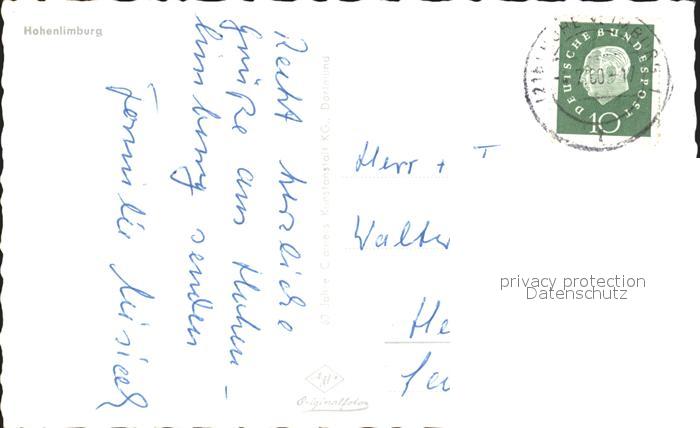 Hohenlimburg
Recht herzliche
Grüße aus Hohen-
limburg senden
Familie
60 Jahre Cramers Kunstanstalt KG., Dortmund
Originalfoto
DEUTSCHE BUNDESPOST
10
Herr +
Walter
He
privacy protection
Datenschutz